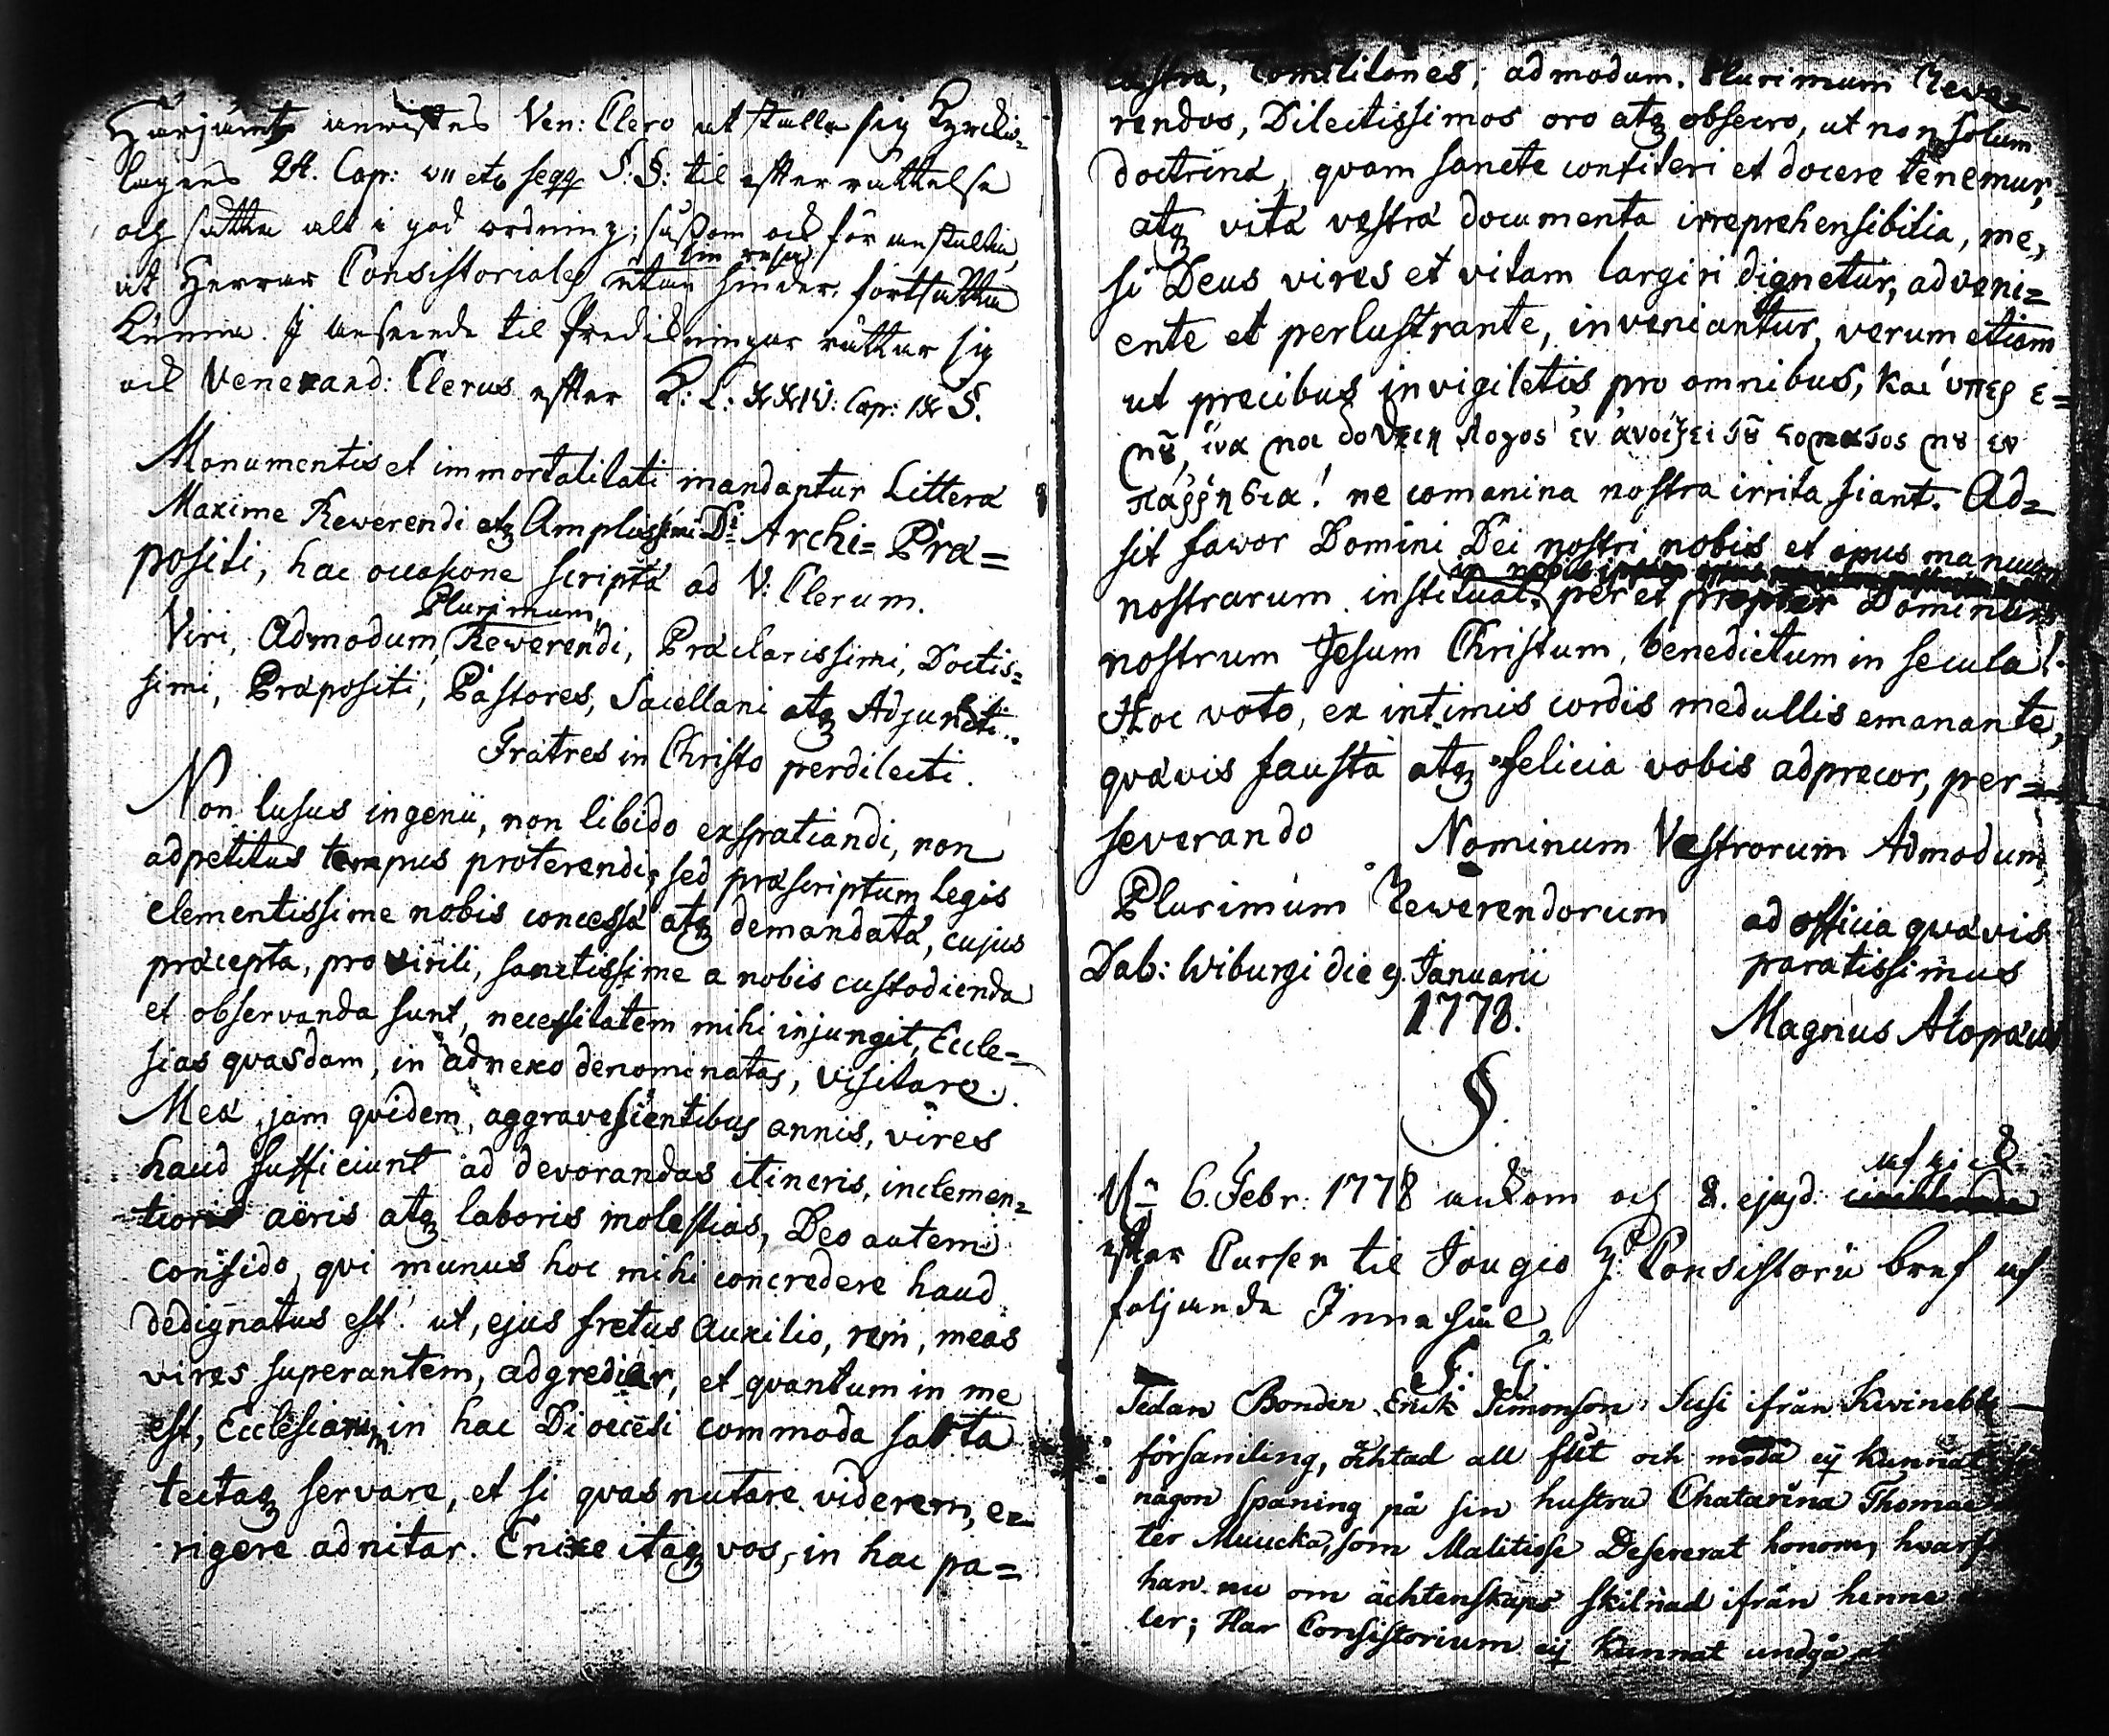 Härjämte anwistes Ven: Clero at ställa sig Kyrckio-
lagens 24. Cap: VII etc seqq §.§: til efterrättelse
och sätta alt i god ordning; såsom ock för anstalter,
at Herrar Consistoriales utan hinder sin resa fortsätta
kunna. I anseende til Predikningar rättar sig
ock Venerand: Clerus efter K: L: XXIV: Cap: IX §.
Monumentis et immortalitati mandantur Litteræ
Maxime Reverendi atq Amplissimi Di Archi-Præ=
positi, hac occasione scriptæ ad V: Clerum.
Viri, Admodum, Plurimum Reverendi, Præclarissimi, Doctis=
simi, Præpositi, Pastores, Sacellani atq Adjuncti..
Fratres in Christo perdilecti.
Non lusus ingenii, non libido exspatiandi, non
adpetitus tempus proterendi, sed præscriptum Legis
clementissime nobis concessæ atq demandatæ, cujus
præcepta, pro virili, sanctissime a nobis custodienda
et observanda sunt, necessitatem mihi injungit, Eccle=
sias qvasdam, in adnexo denominatas, visitare.
Meæ, jam qvidem, aggravescientibus annis, vires
haud sufficiunt ad devorandas itineris, inclemen=
tioris aëris atq laboris molestias, Deo autem
confido, qvi munus hoc mihi concredere haud
dedignatus est. ut, ejus fretus auxilio, rem, meas
vires superantem, adgrediar, et qvantum in me
est, Ecclesiarum in hac Dioecesi commoda sarta
tectaq servare, et si qvas nutare viderem, e=
rigere adnitar. Enixe itaq vos, in hac pa=
læstra, Comilitones, admodum. Plurimum Reve=
rendos, Dilectissimos oro atq obsecro, ut non solum
doctrinæ, quam sancte confiteri et docere tenemur,
atq vitæ vestræ documenta irreprehensibilia, me,
si Deus vires et vitam largiri dignetur, adveni=
ente et perlustrante, inveniantur, verum etiam
ut precibus invigiletis pro omnibus, και ὑπερ ε=
μȣ, ἱνα μοι δοθειη λογος ἐν ἀνοιξει τȣ στοματος μȣ εν
παρρησια! ne comanina nostra irrita fiant. Ad=
sit favor Domini Dei nostri nobis et opus manuum
nostrarum instituat, per et propter Dominum
nostrum Jesum Christum, benedictum in secula!
Hoc voto, ex intimis cordis medullis emanante,
qvævis fausta atq felicia vobis adprecor, per=
severando Nominum Vestrorum Admodum
Plurimum Reverendorum
ad officia qvævis
Dab: Wiburgi die 9. Januarii
paratissimus
1778.
Magnus Alopæus
§.
6. Febr: 1778 ankom och 8. ejusd: afgick
efter Cursen til Jougio Consistorii bref af
följande Innehåll,
S. T.
Sedan Bonden Erik Simonson Susi ifrån Kivinebb
församling, åchtad all flit och möda ej kunnat
någon spaning på sin hustru Chatarina Thomae
ter Muucka, som Malitiose Desererat honom, hwarf
han nu om ächtenskaps skilnad ifrån henne
ler; Har Consistorium ej kunnat undgå